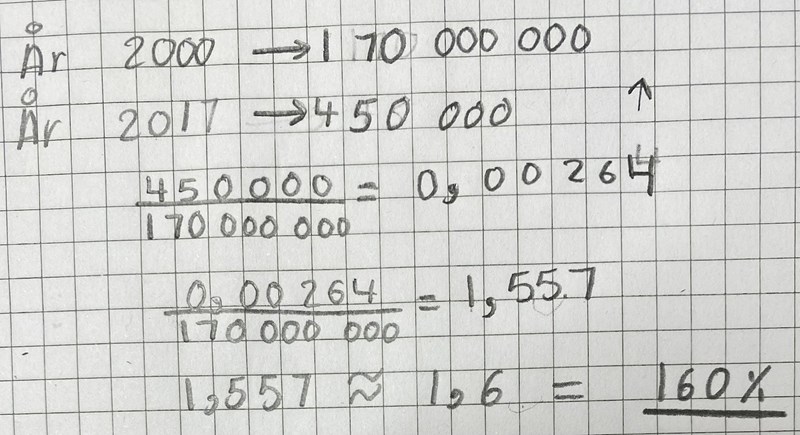 År 2000 → 170 000 000
År 2017 → 450 000 ↑
450000 / 170 000 000 = 0,00264
0,00264 / 170 000 000 = 1,557
1,557 ≈ 1,6 = 160%